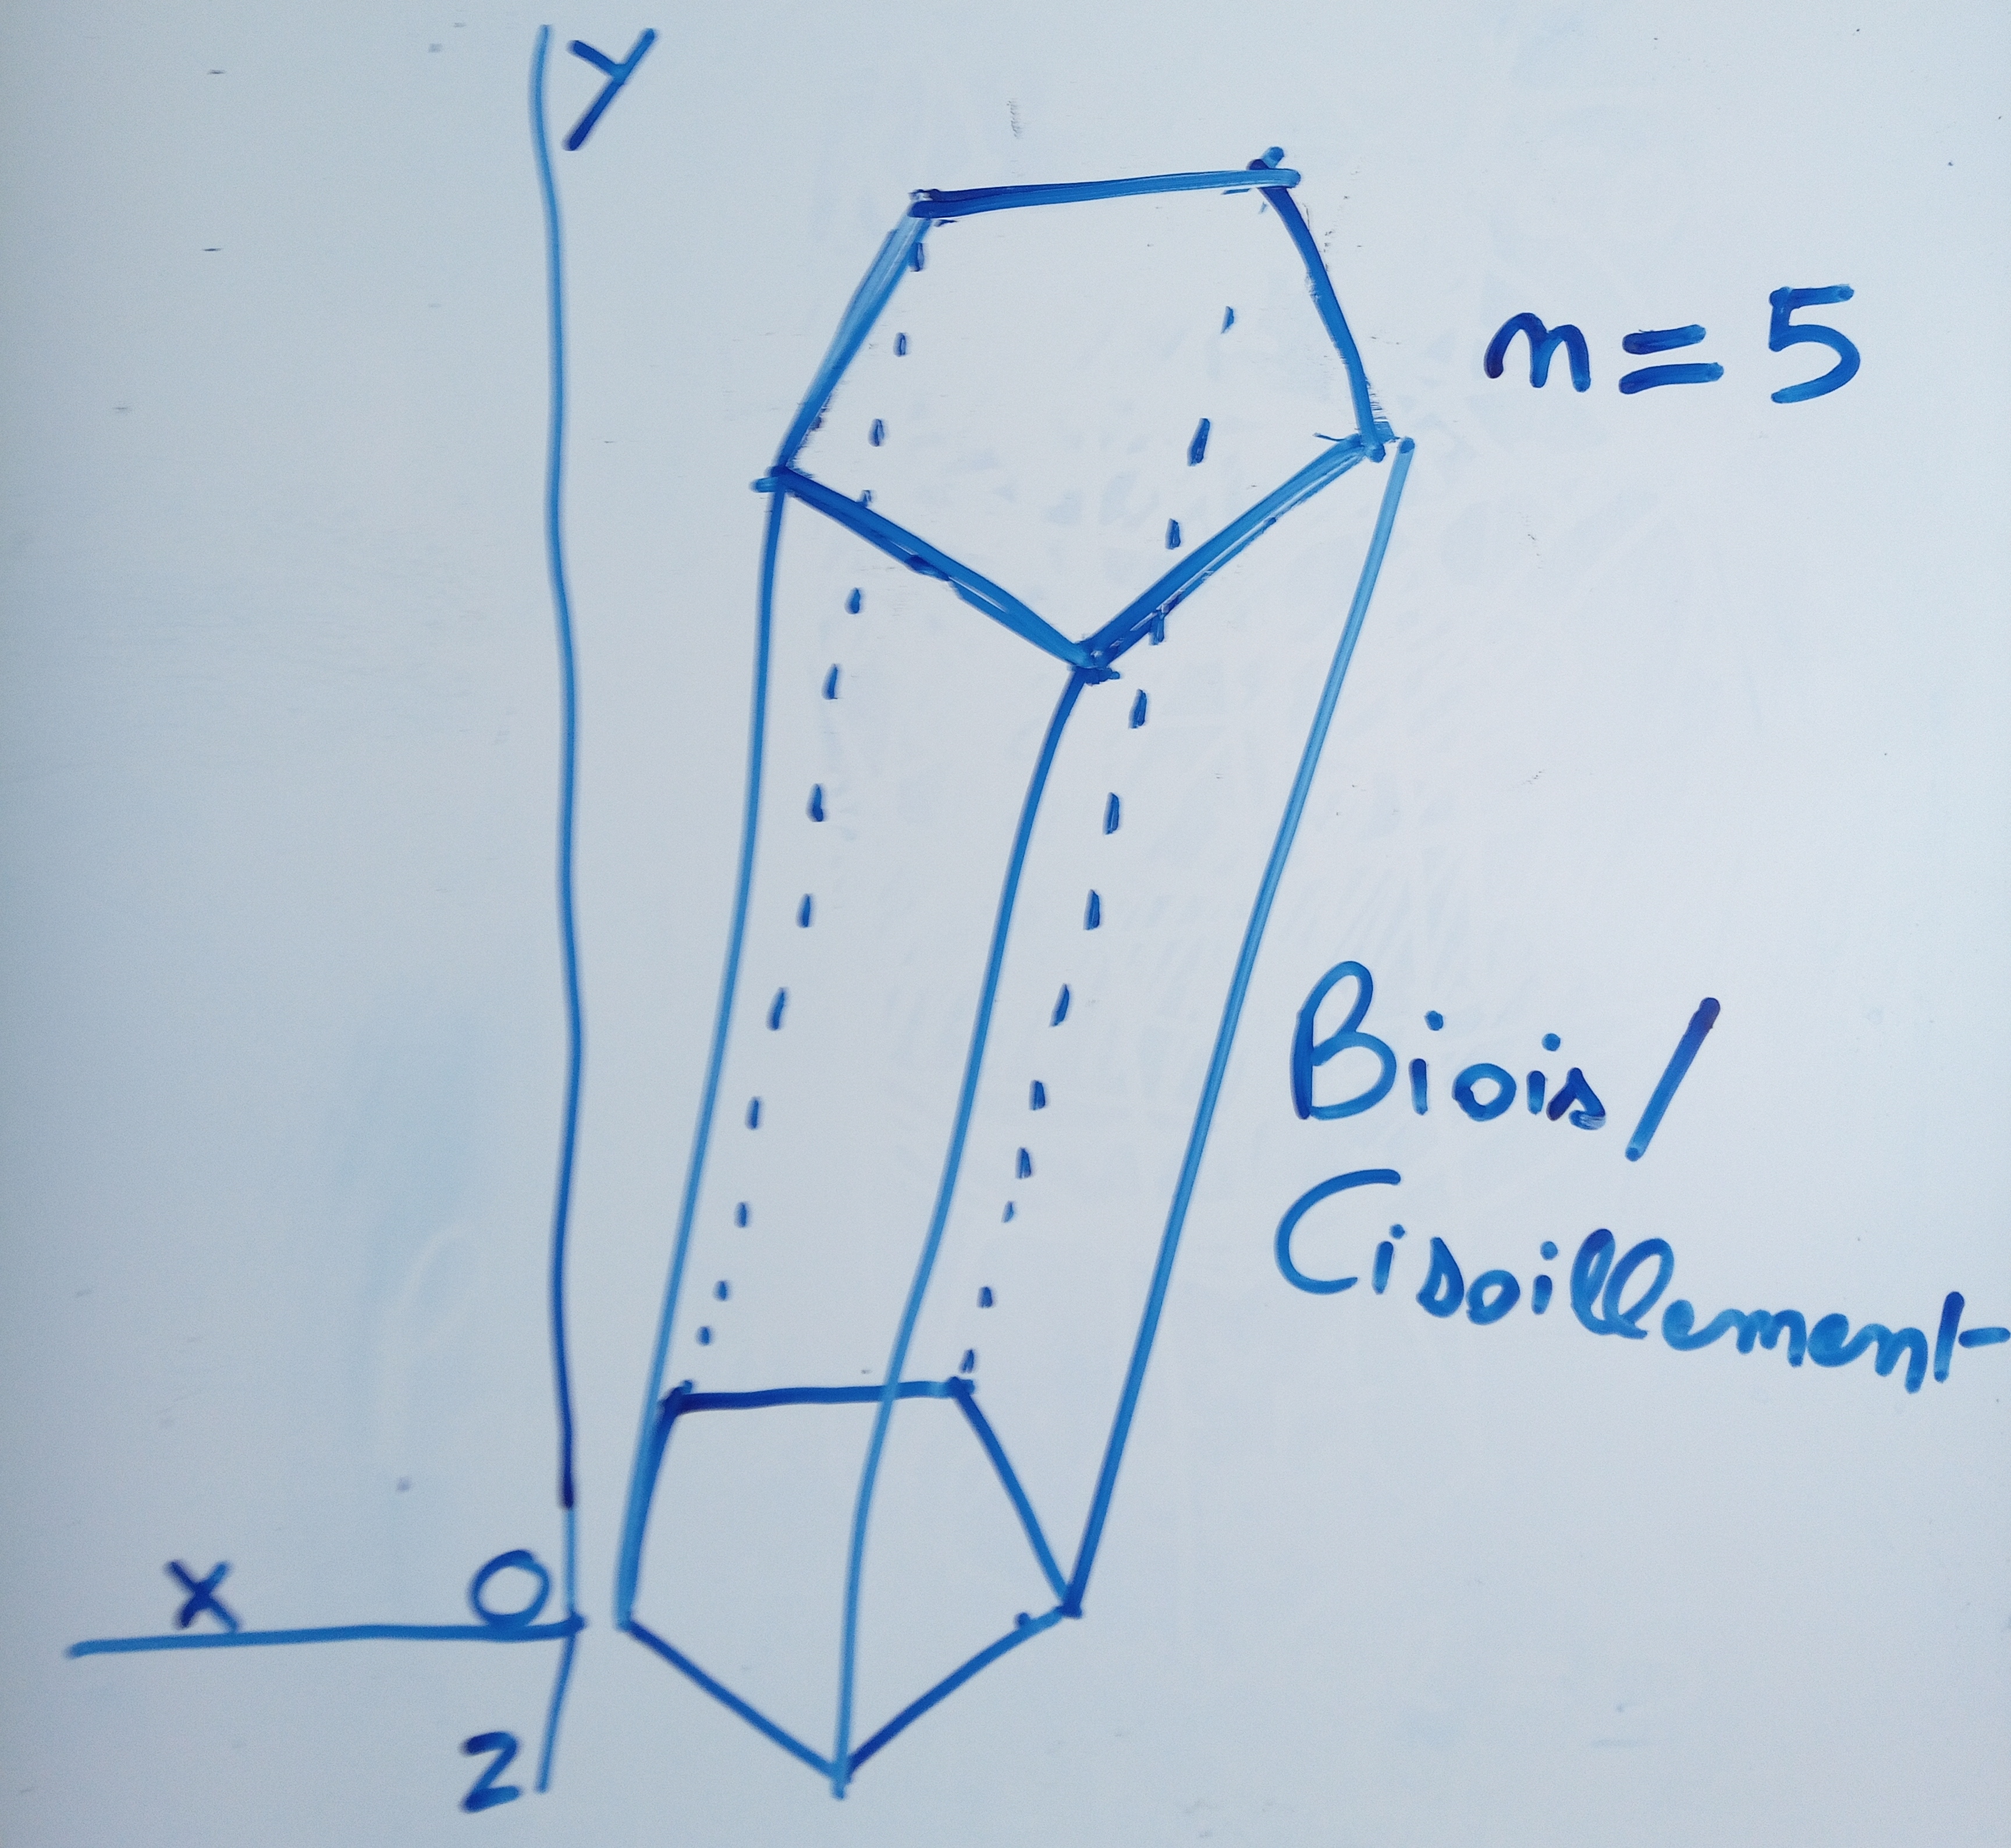 Y
n = 5
Biois/
Cisoillement
X O
Z